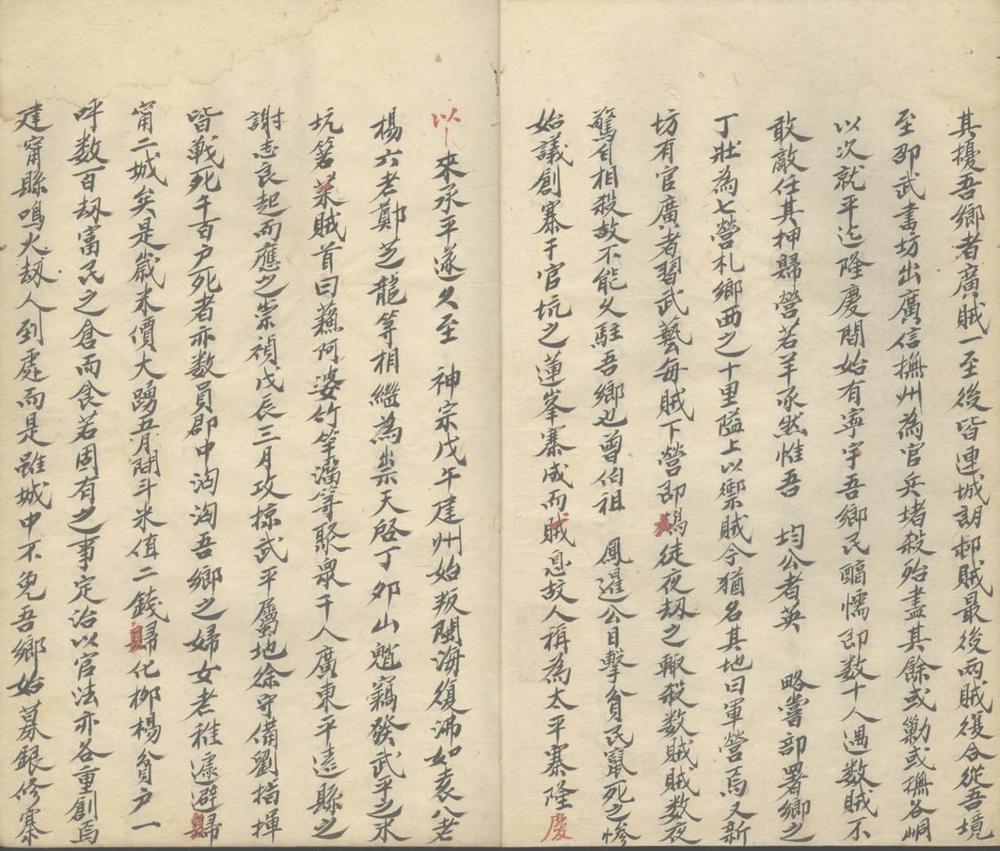 其擾吾鄉者廣賊一至後皆連城胡郝賊最後兩賊復合從吾境
至邵武書坊出廣信撫州為官兵堵殺殆盡其餘或勦或撫各峒
以次就平迄隆慶間始有寧宇吾鄉民醕懦即数十人遇数賊不
敢敵任其押歸營若羊豕然惟吾 均公者英 略嘗部署鄉之
丁壯為七營札鄉西之十里隘上以禦賊今猶名其地曰軍營焉又新
坊有官廣者習武藝每賊下營即鳩徒夜刼之輒殺数賊賊数夜
驚自相殺故不能久駐吾鄉也曾伯祖 鳳暹公目擊負民竄死之慘
始議創寨于官坑之蓮峯寨成而賊息故人稱為太平寨隆慶
以來承平遂久至 神宗戊午建州始叛閩海復沸如袁八老
楊六老鄭芝龍等相繼為祟天啓丁卯山魈竊發武平之永
坑箬菜賊首曰蘓阿婆竹竿滿等聚眾千人廣東平遠縣之
謝志良起而應之崇禎戊辰三月攻掠武平屬地徐守備劉指揮
皆戰死千百户死者亦数員郡中洶洶吾鄉之婦女老稚遽避歸
甯二城矣是歲米價大踴五月間斗米值二錢歸化柳楊貧户一
呼数百刼富民之倉而食若固有之事定治以官法亦各重創焉
建甯縣鳴火刼人到處而是雖城中不免吾鄉始募銀修寨